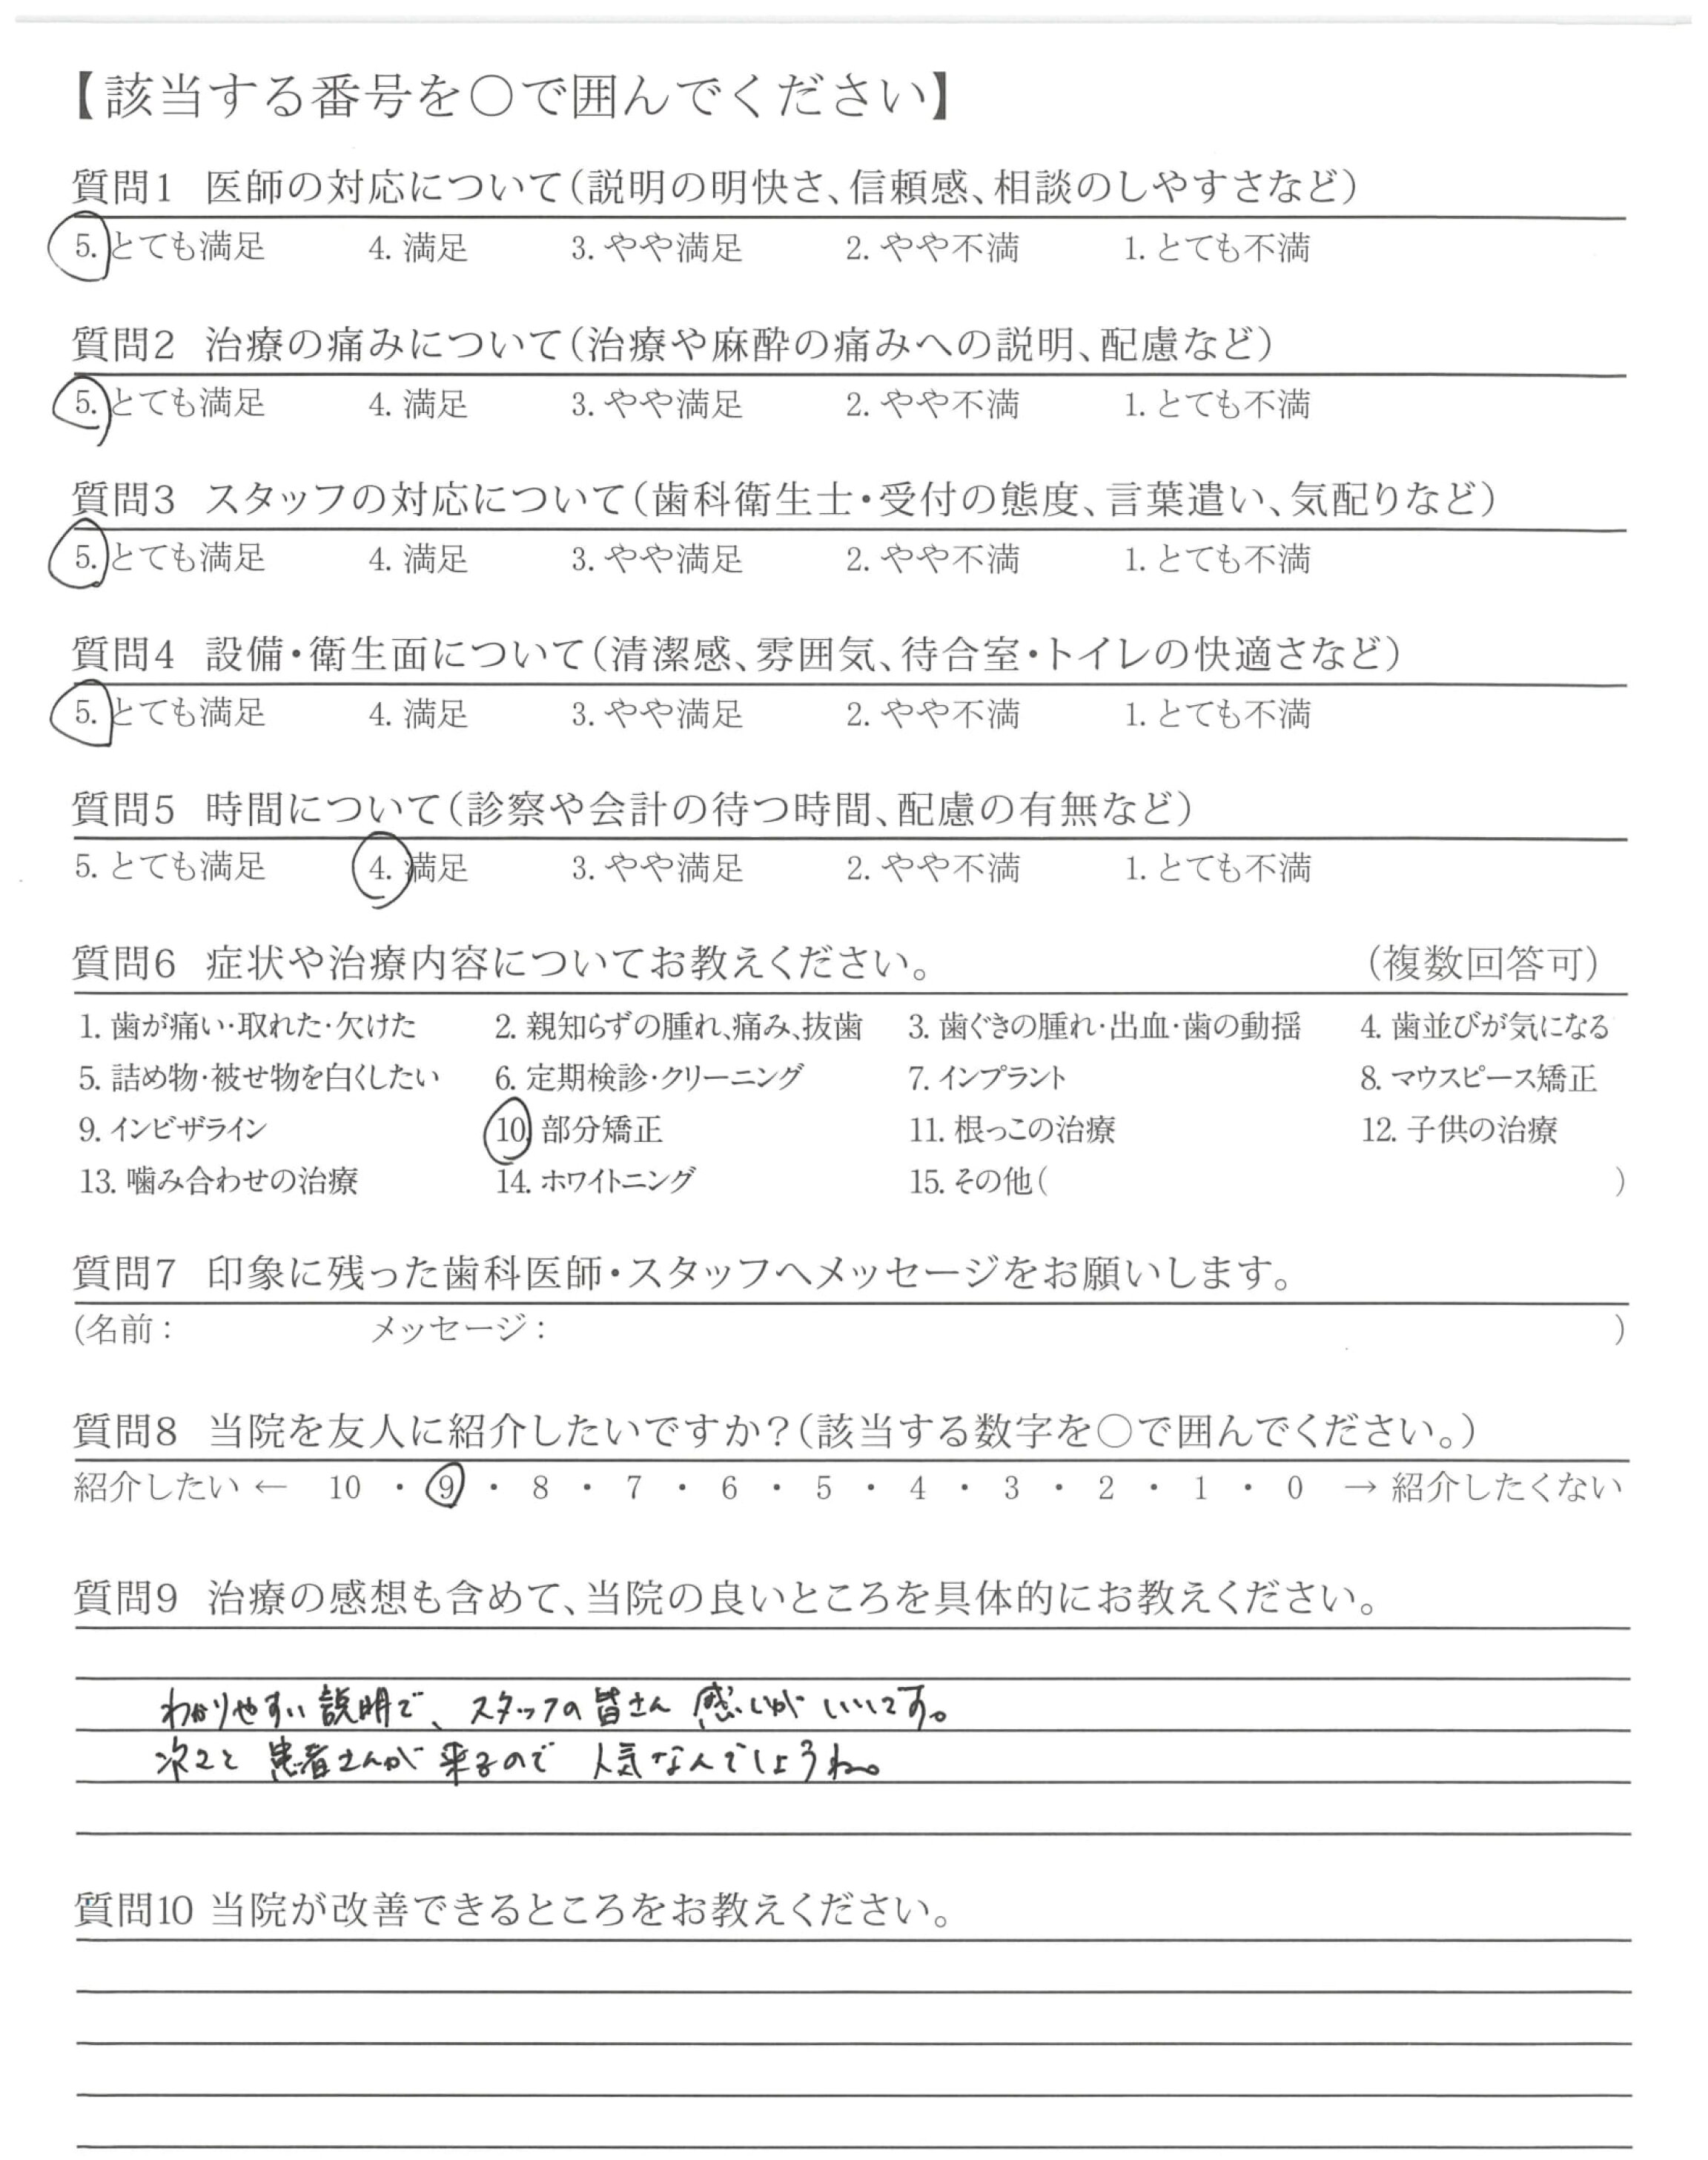 【該当する番号を○で囲んでください】
質問1 医師の対応について(説明の明快さ、信頼感、相談のしやすさなど)
5. とても満足 4. 満足 3. やや満足 2. やや不満 1. とても不満
質問2 治療の痛みについて(治療や麻酔の痛みへの説明、配慮など)
5. とても満足 4. 満足 3. やや満足 2. やや不満 1. とても不満
質問3 スタッフの対応について(歯科衛生士・受付の態度、言葉遣い、気配りなど)
5. とても満足 4. 満足 3. やや満足 2. やや不満 1. とても不満
質問4 設備・衛生面について(清潔感、雰囲気、待合室・トイレの快適さなど)
5. とても満足 4. 満足 3. やや満足 2. やや不満 1. とても不満
質問5 時間について(診察や会計の待つ時間、配慮の有無など)
5. とても満足 4. 満足 3. やや満足 2. やや不満 1. とても不満
質問6 症状や治療内容についてお教えください。 (複数回答可)
1. 歯が痛い・取れた・欠けた 2. 親知らずの腫れ、痛み、抜歯 3. 歯ぐきの腫れ・出血・歯の動揺 4. 歯並びが気になる
5. 詰め物・被せ物を白くしたい 6. 定期検診・クリーニング 7. インプラント 8. マウスピース矯正
9. インビザライン 10. 部分矯正 11. 根っこの治療 12. 子供の治療
13. 噛み合わせの治療 14. ホワイトニング 15. その他( )
質問7 印象に残った歯科医師・スタッフへメッセージをお願いします。
(名前: メッセージ: )
質問8 当院を友人に紹介したいですか?(該当する数字を○で囲んでください。)
紹介したい ← 10 ・ 9 ・ 8 ・ 7 ・ 6 ・ 5 ・ 4 ・ 3 ・ 2 ・ 1 ・ 0 → 紹介したくない
質問9 治療の感想も含めて、当院の良いところを具体的にお教えください。
わかりやすい説明で、スタッフの皆さん感じがいいです。
次々と患者さんが来るので人気なんでしょうね。
質問10 当院が改善できるところをお教えください。